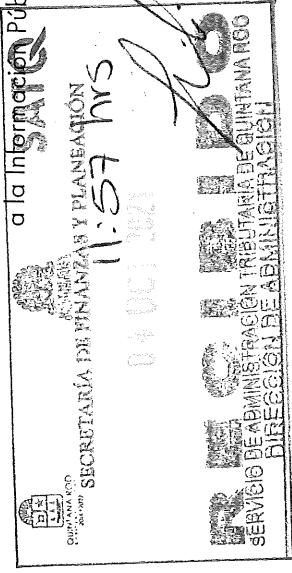 a la Información Púb
SATQ
QUINTANA ROO
SECRETARÍA DE FINANZAS Y PLANEACIÓN
11:57 hrs
04 OCT 2021
RECIBIDO
SERVICIO DE ADMINISTRACIÓN TRIBUTARIA DE QUINTANA ROO
DIRECCIÓN DE ADMINISTRACIÓN